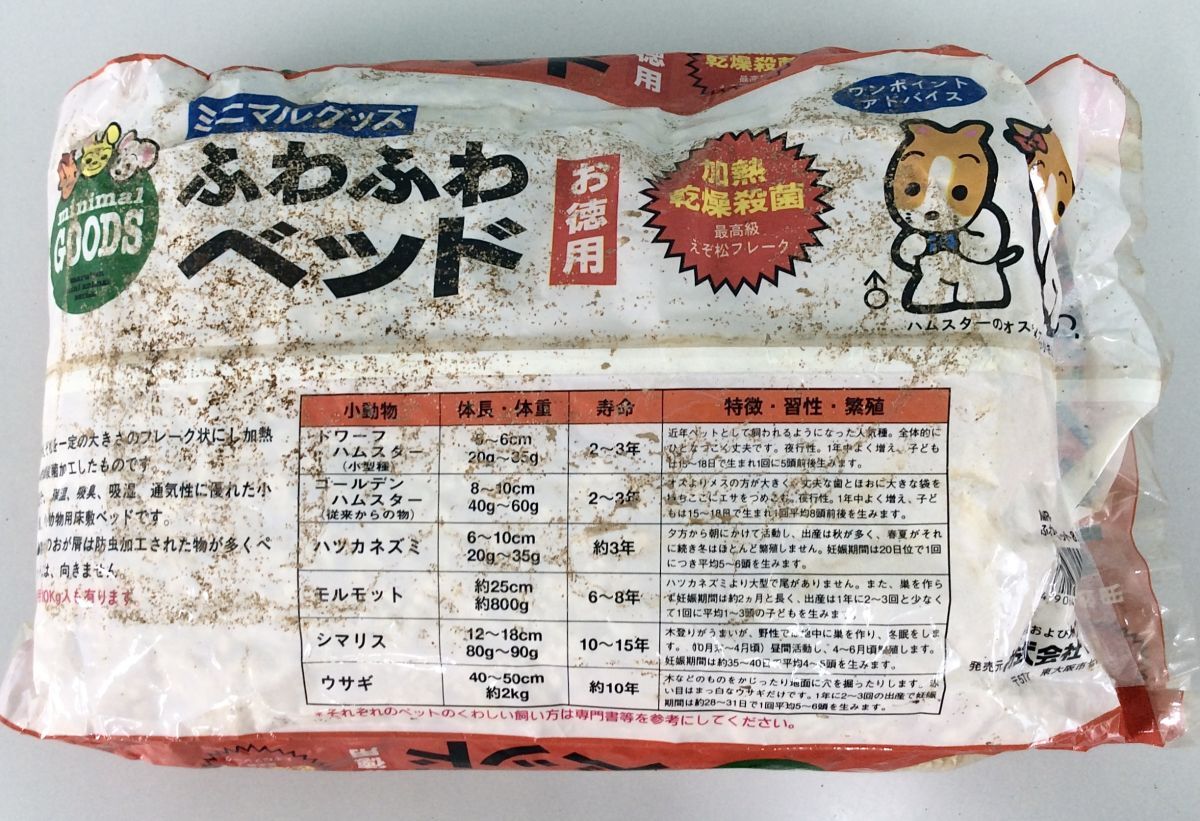 乾燥殺菌
徳用
ミニマルグッズ
ワンポイント
アドバイス
minimal
GOODS
ふわふわ
ベッド
お徳用
加熱
乾燥殺菌
最高級
えぞ松フレーク
♂
ハムスターのオス
を一定の大きさのフレーク状にし加熱
加工したものです。
保温、吸臭、吸湿、通気性に優れた小
動物用床敷ベッドです。
のおが屑は防虫加工された物が多くペ
は、向きません。
10Kg入も有ります
小動物 体長・体重 寿命 特徴・習性・繁殖
ドワーフ
ハムスター
(小型種)
5〜6cm
20g〜35g
2〜3年
近年ペットとして飼われるようになった人気種。全体的に
ひとなつこく丈夫です。夜行性。1年中よく増え、子ども
は15〜18日で生まれ1回に5頭前後生みます。
ゴールデン
ハムスター
(従来からの物)
8〜10cm
40g〜60g
2〜3年
オスよりメスの方が大きく、丈夫な歯とほおに大きな袋を
もちここにエサをつめこむ。夜行性。1年中よく増え、子ど
もは15〜18日で生まれ1回平均8頭前後を生みます。
ハツカネズミ
6〜10cm
20g〜35g
約3年
夕方から朝にかけて活動し、出産は秋が多く、春夏がそれ
に続き冬はほとんど繁殖しません。妊娠期間は20日位で1回
につき平均5〜6頭を生みます。
モルモット
約25cm
約800g
6〜8年
ハツカネズミより大型で尾がありません。また、巣を作ら
ず妊娠期間は約2ヵ月と長く、出産は1年に2〜3回と少なく
て1回に平均1〜3頭の子どもを生みます。
シマリス
12〜18cm
80g〜90g
10〜15年
木登りがうまいが、野性では地中に巣を作り、冬眠をしま
す。(10月末〜4月頃)昼間活動し、4〜6月頃繁殖します。
妊娠期間は約35〜40日で平均4〜5頭を生みます。
ウサギ
40〜50cm
約2kg
約10年
木などのものをかじったり地面に穴を掘ったりします。赤
い目はまっ白なウサギだけです。1年に2〜3回の出産で妊娠
期間は約28〜31日で1回平均5〜6頭を生みます。
*それぞれのペットのくわしい飼い方は専門書等を参考にしてください。
および
発売元
式会社
〒577
東大阪市
ベッド
徳用